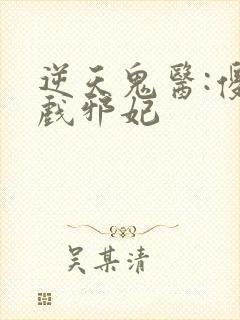 逆天鬼醫:
戲邪妃
吴某清